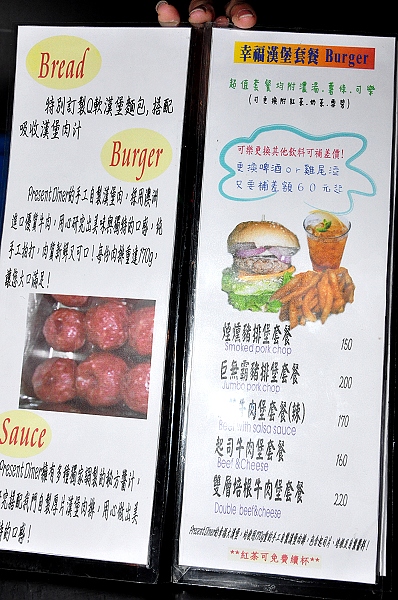 Bread
特別訂製Q軟漢堡麵包,搭配
吸收漢堡肉汁
Burger
Present Diner的手工自製漢堡肉,採用澳洲
進口優質牛肉,用心研究出美味與獨特的口感,純
手工拍打,肉質新鮮又可口!每份肉排重達170g,
讓您大口滿足!
Sauce
Present Diner擁有多種獨家調製的秘方醬汁,
究搭配我們自製厚片漢堡肉排,用心做出美
特的口感!
幸福漢堡套餐 Burger
超值套餐均附濃湯.薯條.可樂
(可更換附紅茶.奶茶.
可樂更換其他飲料可補差價!
更換啤酒or雞尾酒
只要補差額60元起
煙燻豬排堡套餐 150
Smoked pork chop
巨無霸豬排堡套餐 200
Jumbo pork chop
牛肉堡套餐(辣) 170
Beef with salsa sauce
起司牛肉堡套餐 160
Beef &Cheese
雙層培根牛肉堡套餐 220
Double beef&cheese
**紅茶可免費續杯**